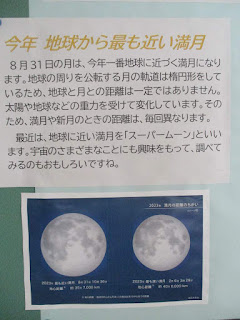 今年 地球から最も近い満月
８月３１日の月は、今年一番地球に近づく満月になり
ます。地球の周りを公転する月の軌道は楕円形をして
いるため、地球と月との距離は一定ではありません。
太陽や地球などの重力を受けて変化しています。その
ため、満月や新月のときの距離は、毎回異なります。
最近は、地球に近い満月を「スーパームーン」といい
ます。宇宙のさまざまなことにも興味をもって、調べて
みるのもおもしろいですね。
2023年 満月の距離のちがい
2023年 最も近い満月
2023年 最も遠い満月